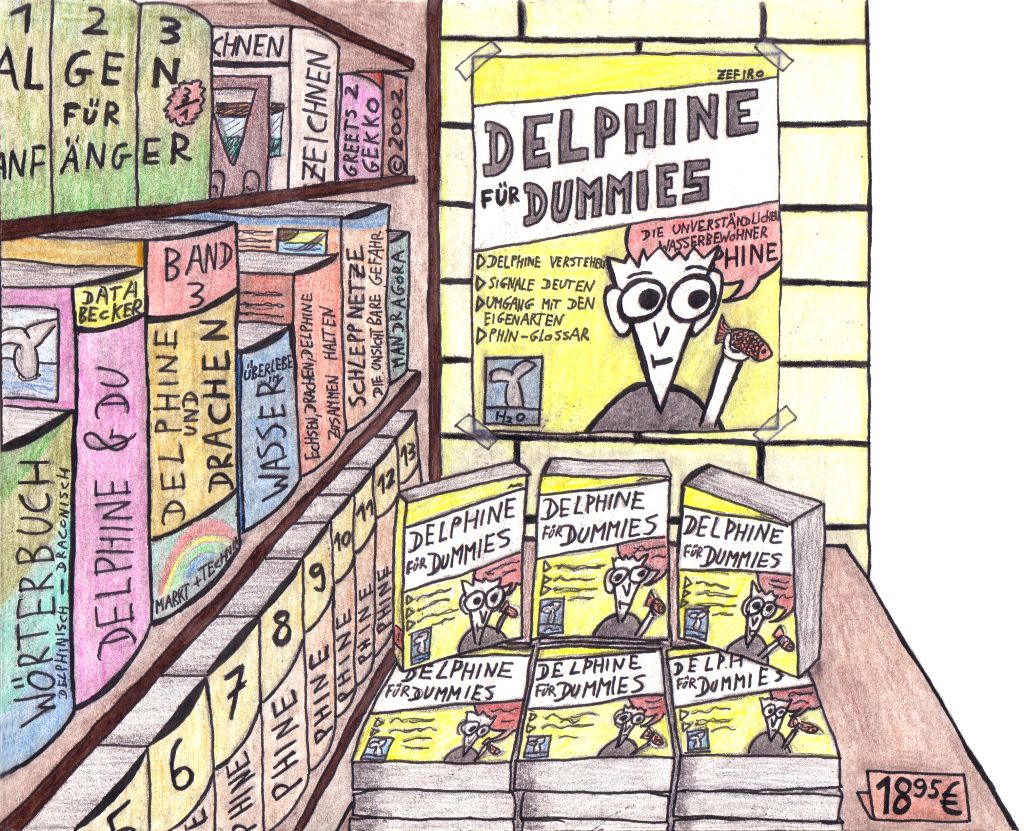 1
AL
ANF
2
GE
FÜR
ÄNG
3
N
ER
CHNEN
ZEICHNEN
GREETS 2
GEKKO
© 2002
DATA
BECKER
DELPHINE & DU
WÖRTERBUCH
DELPHINISCH — DRACONISCH
BAND
3
DELPHINE
UND
DRACHEN
MARKT + TECHNIK
ÜBERLEBE
WASSER
ECHSEN, DRACHEN, DELPHINE
ZUSAMMEN HALTEN
SCHLEPPNETZE
DIE UNSICHTBARE GEFAHR
MANDRAGORA
5
6
7
8
9
10
11
12
13
HINE
PHINE
PHINE
PHINE
PHINE
PHINE
ZEFIRO
DELPHINE
FÜR DUMMIES
DIE UNVERSTÄNDLICHEN
WASSERBEWOHNER
PHINE
▷ DELPHINE VERSTEHEN
▷ SIGNALE DEUTEN
▷ UMGANG MIT DEN
EIGENARTEN
▷ PHIN-GLOSSAR
H2O
DELPHINE
FÜR DUMMIES
DELPHINE
FÜR DUMMIES
DELPHINE
FÜR DUMMIES
DELPHINE
FÜR DUMMIES
DELPHINE
FÜR DUMMIES
DELPH
FÜR DUMMIES
18 95 €